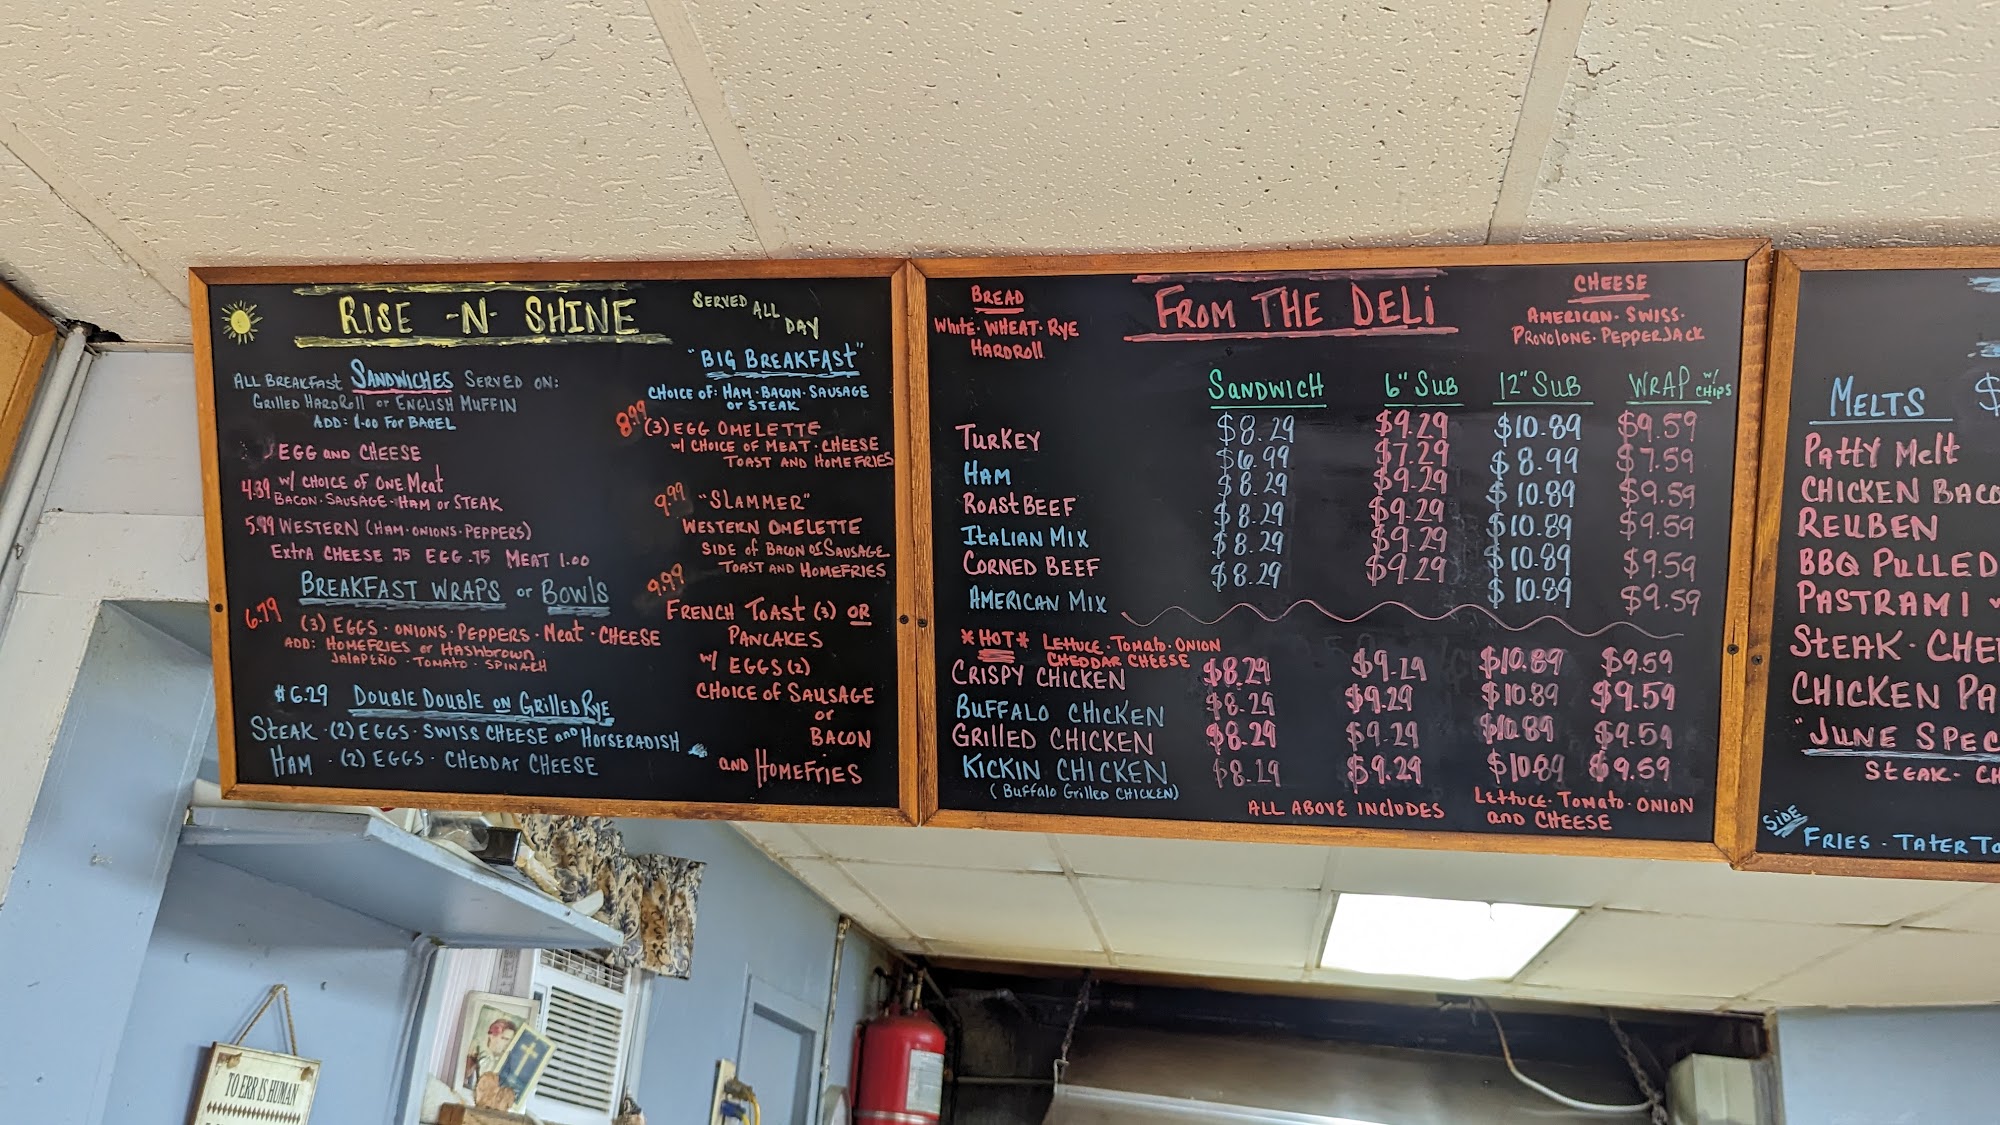 RISE -N- SHINE
SERVED ALL DAY
ALL BREAKFAST SANDWICHES SERVED ON:
GRILLED HARDROLL or ENGLISH MUFFIN
ADD: 1.00 FOR BAGEL
EGG AND CHEESE
4.39 w/ CHOICE OF ONE MEAT
BACON · SAUSAGE · HAM or STEAK
5.99 WESTERN (HAM · ONIONS · PEPPERS)
EXTRA CHEESE .75 EGG .75 MEAT 1.00
BREAKFAST WRAPS or BOWLS
6.79
(3) EGGS · ONIONS · PEPPERS · MEAT · CHEESE
ADD: HOMEFRIES or HASHBROWN
JALAPEÑO · TOMATO · SPINACH
$6.29 DOUBLE DOUBLE ON GRILLED RYE
STEAK · (2) EGGS · SWISS CHEESE AND HORSERADISH
HAM · (2) EGGS · CHEDDAR CHEESE
"BIG BREAKFAST"
CHOICE OF: HAM · BACON · SAUSAGE
or STEAK
8.99 (3) EGG OMELETTE
w/ CHOICE OF MEAT · CHEESE
TOAST AND HOMEFRIES
9.99 "SLAMMER"
WESTERN OMELETTE
SIDE OF BACON OR SAUSAGE
TOAST AND HOMEFRIES
9.99
FRENCH TOAST (3) OR
PANCAKES
w/ EGGS (2)
CHOICE OF SAUSAGE
or
BACON
AND HOMEFRIES
BREAD
WHITE · WHEAT · RYE
HARDROLL
FROM THE DELI
CHEESE
AMERICAN · SWISS ·
PROVOLONE · PEPPERJACK
SANDWICH 6" SUB 12" SUB WRAP w/ CHIPS
TURKEY $8.29 $9.29 $10.89 $9.59
HAM $6.99 $7.29 $8.99 $7.59
ROAST BEEF $8.29 $9.29 $10.89 $9.59
ITALIAN MIX $8.29 $9.29 $10.89 $9.59
CORNED BEEF $8.29 $9.29 $10.89 $9.59
AMERICAN MIX $8.29 $9.29 $10.89 $9.59
*HOT* LETTUCE · TOMATO · ONION
CHEDDAR CHEESE
CRISPY CHICKEN $8.29 $9.29 $10.89 $9.59
BUFFALO CHICKEN $8.29 $9.29 $10.89 $9.59
GRILLED CHICKEN $8.29 $9.29 $10.89 $9.59
KICKIN CHICKEN $8.29 $9.29 $10.89 $9.59
(BUFFALO GRILLED CHICKEN)
ALL ABOVE INCLUDES LETTUCE · TOMATO · ONION
AND CHEESE
MELTS $
PATTY MELT
CHICKEN BACO
REUBEN
BBQ PULLED
PASTRAMI
STEAK · CHE
CHICKEN PA
"JUNE SPEC
STEAK · CH
SIDE
FRIES · TATER TO
TO ERR IS HUMAN